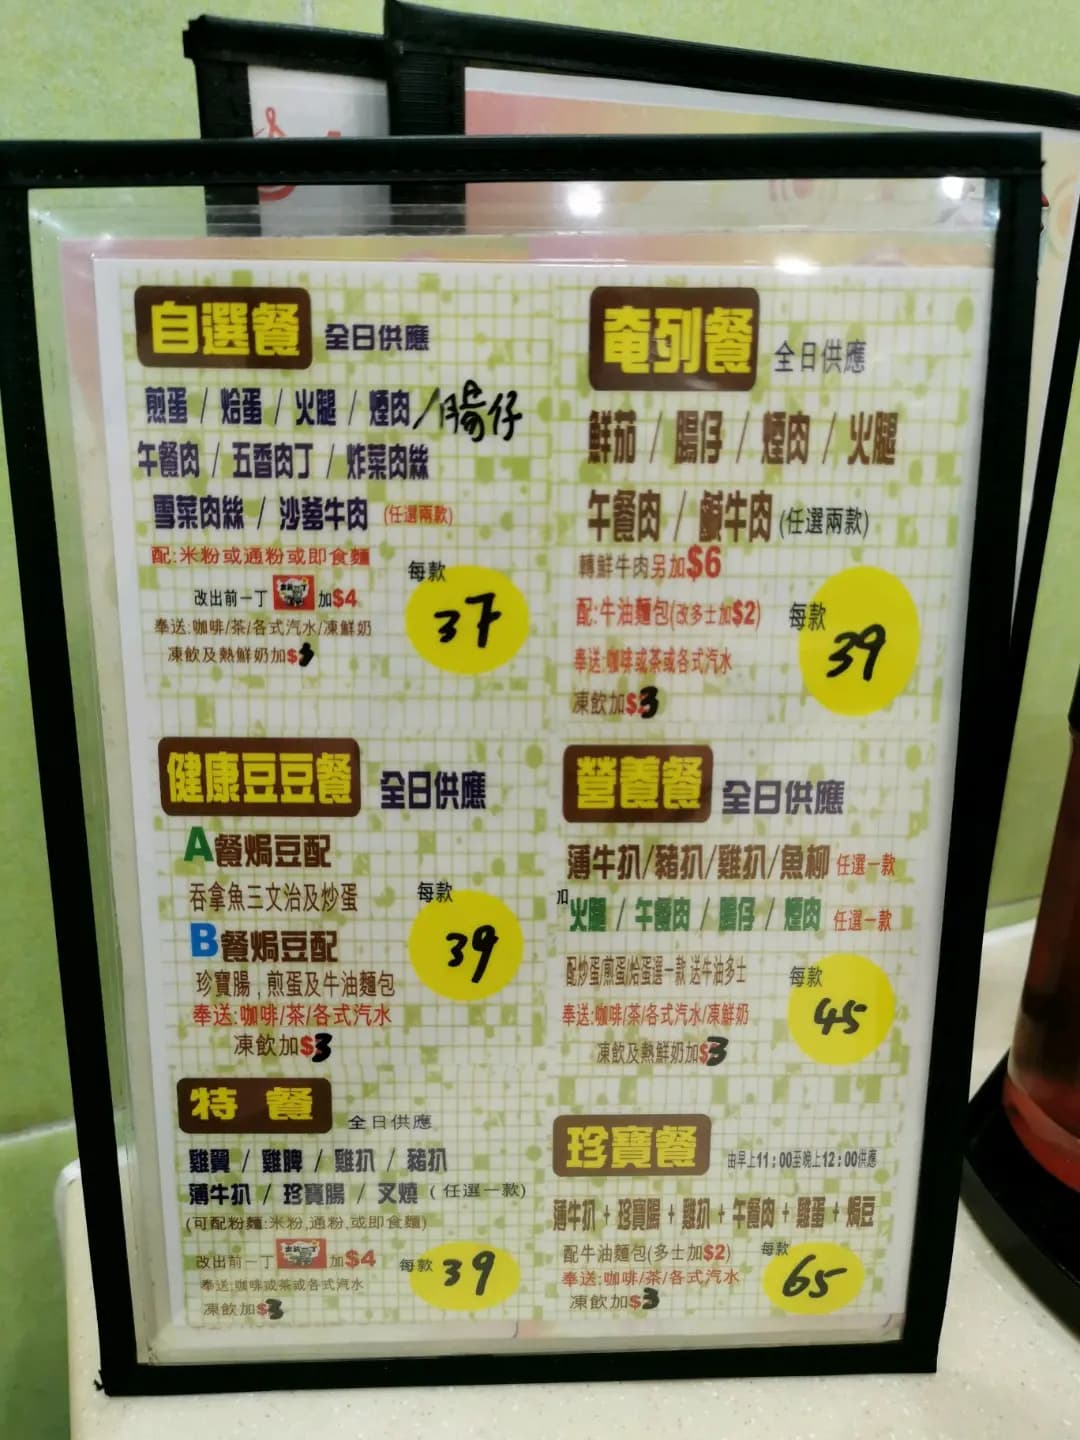 自選餐 全日供應
煎蛋 / 烚蛋 / 火腿 / 煙肉 / 腸仔
午餐肉 / 五香肉丁 / 炸菜肉絲
雪菜肉絲 / 沙爹牛肉 (任選兩款)
配:米粉或通粉或即食麵
改出前一丁 出前一丁 加$4
奉送:咖啡/茶/各式汽水/凍鮮奶
凍飲及熱鮮奶加$3
每款
37
奄列餐 全日供應
鮮茄 / 腸仔 / 煙肉 / 火腿
午餐肉 / 鹹牛肉 (任選兩款)
轉鮮牛肉另加$6
配:牛油麵包(改多士加$2)
奉送:咖啡或茶或各式汽水
凍飲加$3
每款
39
健康豆豆餐 全日供應
A餐焗豆配
吞拿魚三文治及炒蛋
B餐焗豆配
珍寶腸,煎蛋及牛油麵包
奉送:咖啡/茶/各式汽水
凍飲加$3
每款
39
營養餐 全日供應
薄牛扒/豬扒/雞扒/魚柳 任選一款
加火腿 / 午餐肉 / 腸仔 / 煙肉 任選一款
配炒蛋/煎蛋/烚蛋選一款 送牛油多士
奉送:咖啡/茶/各式汽水/凍鮮奶
凍飲及熱鮮奶加$3
每款
45
特餐 全日供應
雞翼 / 雞脾 / 雞扒 / 豬扒
薄牛扒 / 珍寶腸 / 叉燒 (任選一款)
(可配粉麵:米粉,通粉,或即食麵)
改出前一丁 出前一丁 加$4
奉送:咖啡或茶或各式汽水
凍飲加$3
每款
39
珍寶餐 由早上11:00至晚上12:00供應
薄牛扒 + 珍寶腸 + 雞扒 + 午餐肉 + 雞蛋 + 焗豆
配牛油麵包(多士加$2)
奉送:咖啡/茶/各式汽水
凍飲加$3
每款
65